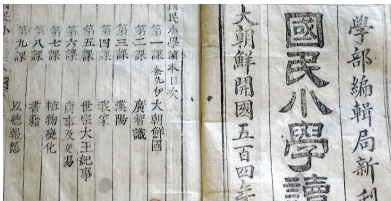 學部編輯局新刊
國民小學讀
大朝鮮開國五百四年
國民小學讀本目次
第一課 大朝鮮國
第二課 廣智識
第三課 漢陽
第四課 我家
第五課 世宗大王紀事
第六課 商事及交易
第七課 植物變化
第八課 書籍
第九課 以德報怨